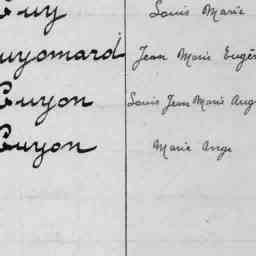 Guy Louis Marie
Guyomard Jean Marie Eugè
Guyon Louis Jean Marie Aug
Guyon Marie Ange